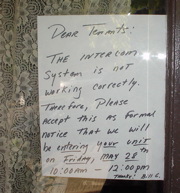 Dear Tenants:
THE INTERCOM
System is NOT
working correctly.
Therefore, Please
accept this as formal
notice that we will
be entering your unit
on Friday, MAY 28th
10:00am - 12:00pm
Thanks! Bill G.